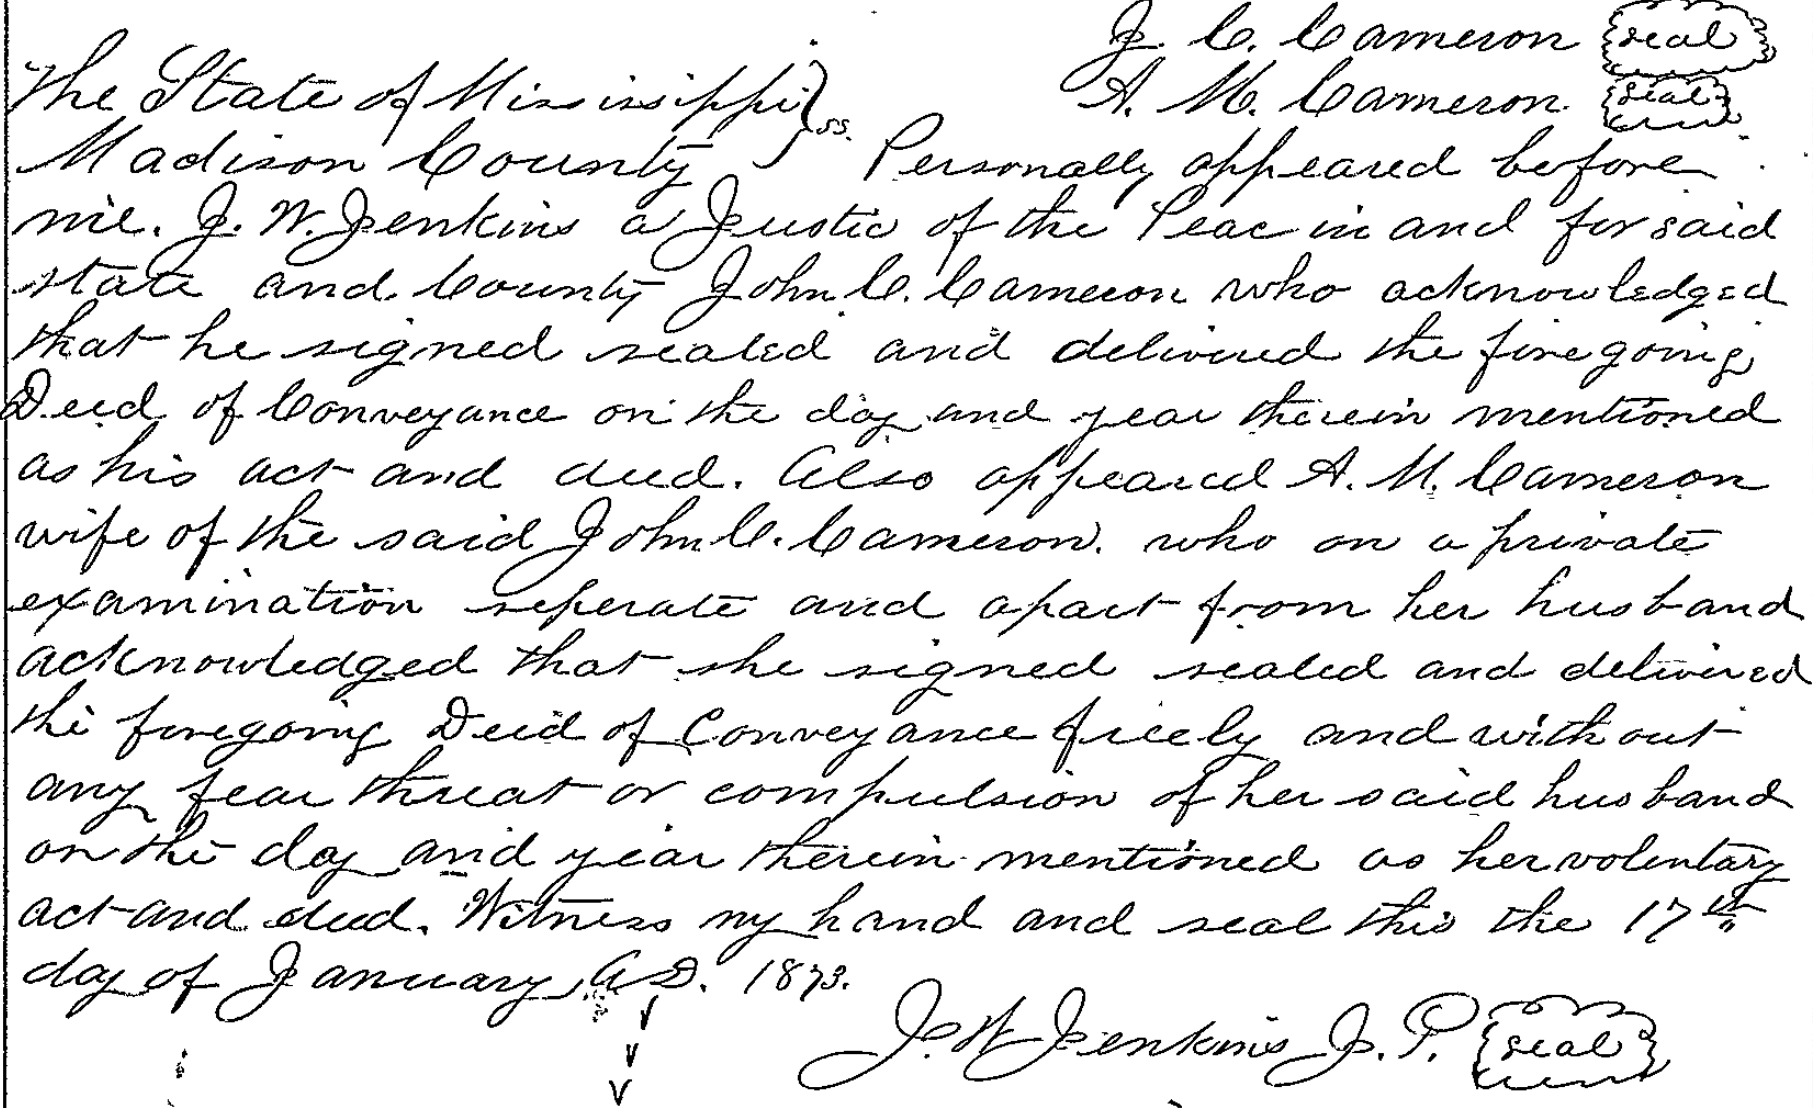 J. C. Cameron seal
The State of Mississippi } ss. A. M. Cameron. seal
Madison County } Personally appeared before
me. J. W. Jenkins a Justic of the Peac in and for said
state and County John C. Cameron who acknowledged
that he signed sealed and delivered the foregoing
Deed of Conveyance on the day and year therein mentioned
as his act and deed. Also appeared A. M. Cameron
wife of the said John C. Cameron. who on a private
examination seperate and apart from her husband
acknowledged that she signed sealed and delivered
the foregoing Deed of Conveyance freely and without
any fear threat or compulsion of her said husband
on the day and year therein mentioned as her voluntary
act and deed. Witness my hand and seal this the 17th
day of January, A.D. 1873.
J. W Jenkins J. P. seal